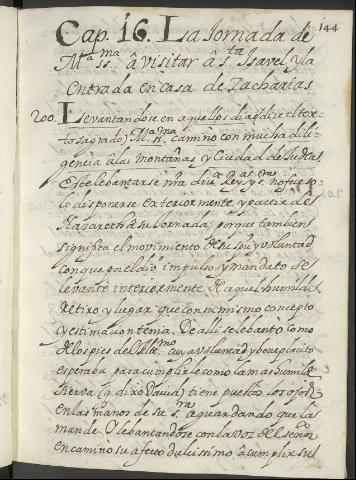 144
Cap. 16. La Jornada de
M.ª ss.ma â visitar â s.ta Isavel y la
entrada en casa de Zacharias
200. Levantandose en aquellos dias (dize el tex-
to sagrado) M.ª ss.ma caminó con mucha dili-
gencia â las montañas y Ciudad de Judea,
Este lebantarse nra diu.ª Rey.ª y s.ra no fue so-
lo disponerse exteriormente y partir de
Nazareth â su Jornada, porque tambien
significa el movimiento de su spu y voluntad
con que por el diuo impulso y mandato se
levantó interiormente de aquel humilde
retiro y lugar que con su mismo concepto
y estimacion tenia. De alli se lebantó como
de los pies del Alt.mo cuya voluntad y beneplacito
esperaba para cumplirle como la mas humilde
sierva (q dixo David) tiene puestos los ojos
en las manos de su s.ra aguardando que la
mande. Y lebantandose con la voz del señor
encaminó su afecto dulcissimo â cumplir su